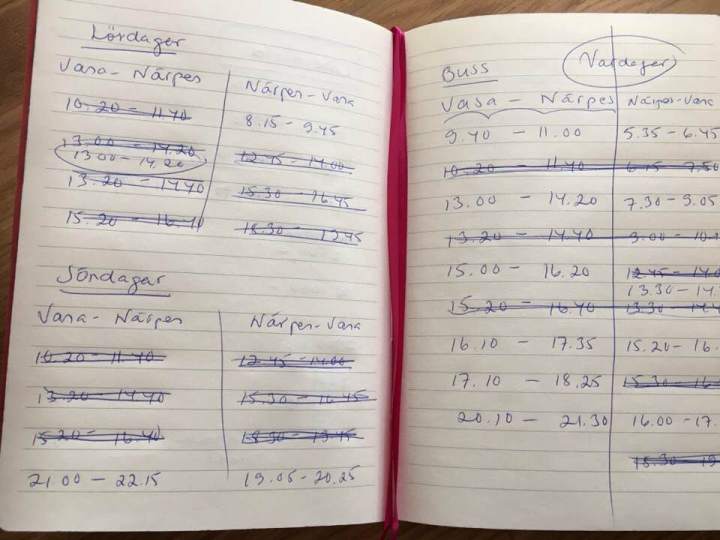 Lördagar
Vasa - Närpes Närpes - Vasa
10.20 - 11.40 8.15 - 9.45
13.00 - 14.20 12.45 - 14.00
13.00 - 14.20
13.20 - 14.40 15.30 - 16.45
15.20 - 16.40 18.30 - 19.45
Söndagar
Vasa - Närpes Närpes - Vasa
10.20 - 11.40 12.45 - 14.00
13.20 - 14.40 15.30 - 16.45
15.20 - 16.40 18.30 - 19.45
21.00 - 22.15 19.05 - 20.25
Buss Vardagar
Vasa - Närpes Närpes - Vasa
9.40 - 11.00 5.35 - 6.45
10.20 - 11.40 6.15 - 7.50
13.00 - 14.20 7.30 - 9.05
13.20 - 14.40 9.00 - 10.
15.00 - 16.20 12.45 - 14.0
13.30 - 14.
15.20 - 16.40 13.30 - 14.4
16.10 - 17.35 15.20 - 16.
17.10 - 18.25 15.30 - 16
20.10 - 21.30 16.00 - 17.
18.30 - 19